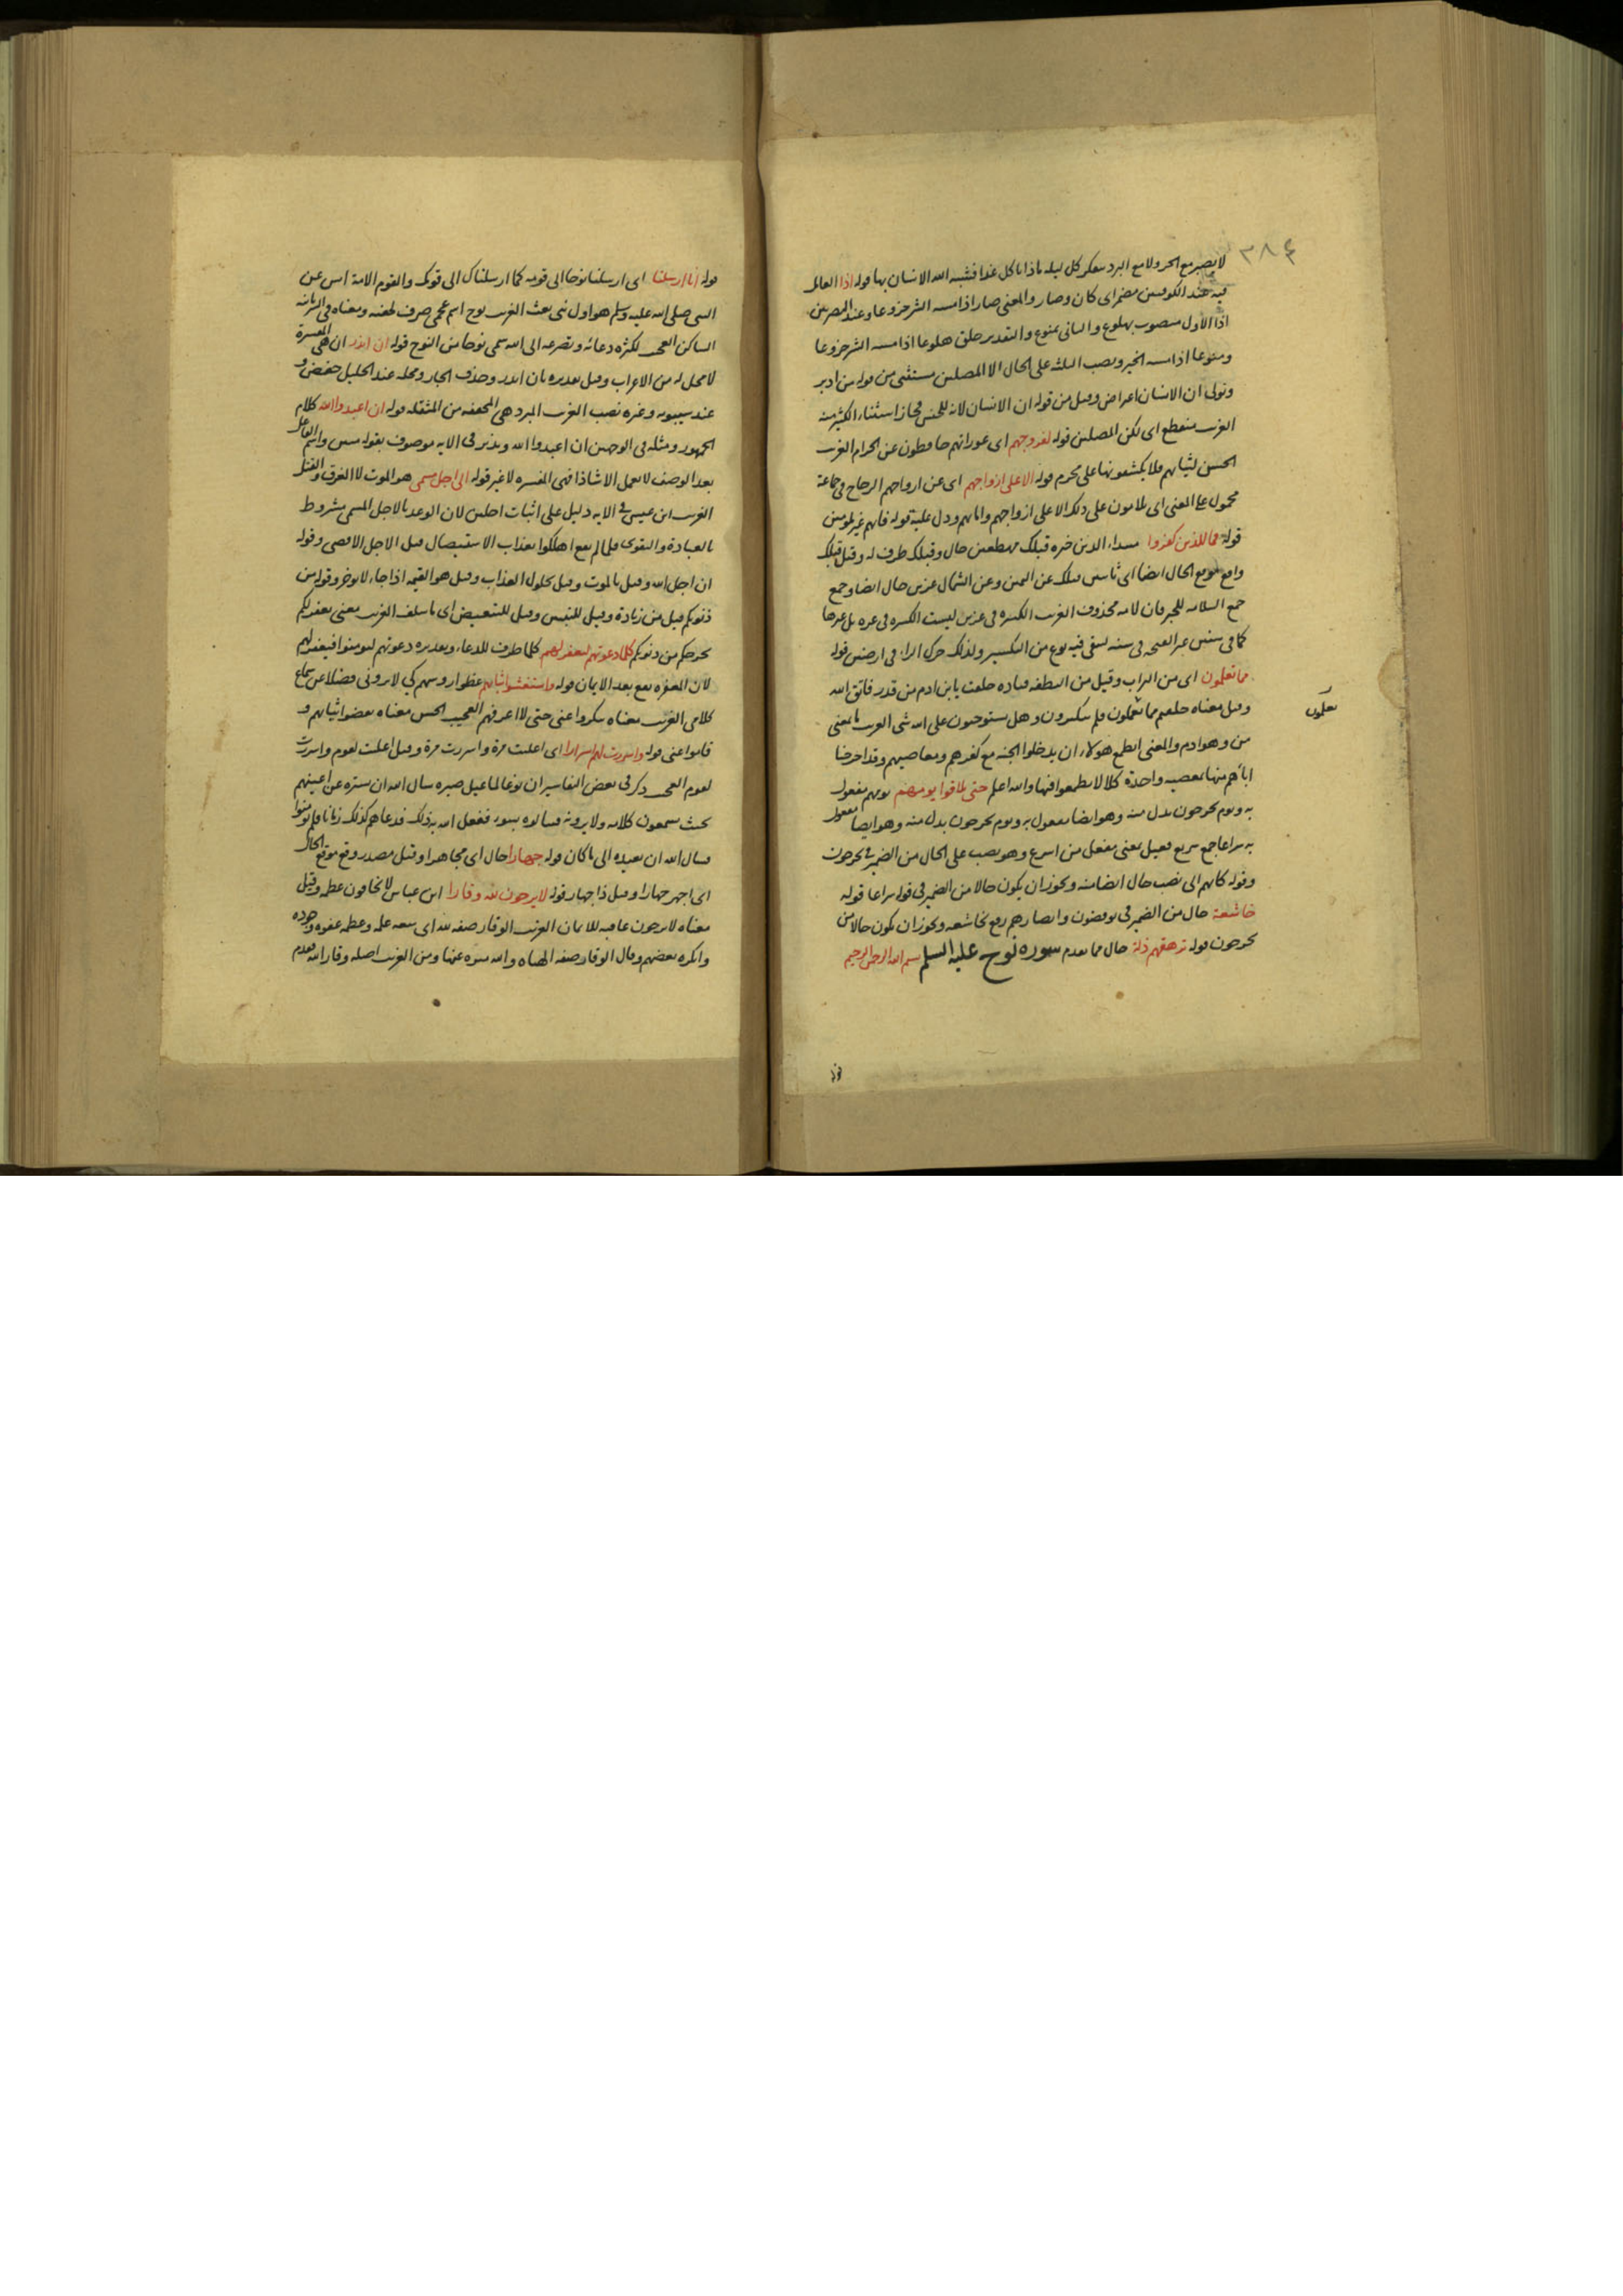 ٣٨٤
لا يصبر مع الحر ولا مع البرد يتفكر كل ليلة ماذا ياكل غدا فشبه الله الانسان بها قوله اذا العامل
فيه عند الكوفيين مضمر اى كان وصار والمعنى صار اذا مسه الشر جزوعا وعند البصريين
اذا الاول منصوب بهلوع والثانى بمنوع والتقدير خلق هلوعا اذا مسه الشر جزوعا
ومنوعا اذا مسه الخير ونصب الثلثة على الحال الا المصلين مستثنى من قوله من ادبر
وتولى ان الانسان اعراض وقيل من قوله ان الانسان لانه للجنس فجاز استثناء الكثير منه
الغريب منقطع اى لكن المصلين قوله لفروجهم اى عوراتهم حافظون عن الحرام الغريب
الحسن لثيابهم فلا يكشفونها على محرم قوله الا على ازواجهم اى عن ازواجهم الزجاج فى جماعة
محمول على المعنى اى يلامون على ذلك الا على ازواجهم وامائهم ودل عليه قوله فانهم غير ملومين
قوله فما للذين كفروا مبتدا، الذين خبره قبلك مهطعين حال وقبلك ظرف له وقيل قبلك
واقع موقع الحال ايضا اى ثابتين قبلك عن اليمين وعن الشمال عزين حال ايضا وجمع
جمع السلامة للجبر فان لامه محذوف الغريب الكسره فى عزين ليست الكسره فى عزه بل غيرها
كما فى سنين غير الفتحه فى سنه لبقى فيه نوع من التكسير ولذلك حرك الراء فى ارضين قوله
مما تعلمون اى من التراب وقيل من النطفه قتاده خلقت يا ابن ادم من قذر فاتق الله
وقيل معناه خلقهم مما تعملون فلم يتكبرون وهل يستوجبون على الله شى الغريب ما بمعنى
من وهو ادم والمعنى ايطمع هؤلاء ان يدخلوا الجنة مع كفرهم ومعاصيهم وقد اخرجنا
اباهم منها بمعصيه واحدة كلا لا يطمعوا فيها والله اعلم حتى يلاقوا يومهم يومهم مفعول
به ويوم يخرجون بدل منه وهو ايضا مفعول به ويوم يخرجون بدل منه وهو ايضا مفعول
به سراعا جمع سريع فعيل بمعنى مفعل من اسرع وهو نصب على الحال من الضمير فى يخرجون
وقوله كانهم الى نصب حال ايضا منه ويجوز ان يكون حالا من الضمير فى قوله سراعا قوله
خاشعة حال من الضمير فى يوفضون وابصارهم رفع بخاشعه ويجوز ان يكون حالا من
يخرجون قوله ترهقهم ذلة حال مما تقدم سورة نوح عليه السلم بسم الله الرحمن الرحيم
تعلمون
قوله انا ارسلنا اى ارسلنا نوحا الى قومه كما ارسلناك الى قومك والقوم الامة انس عن
النبى صلى الله عليه وسلم هو اول نبى بعث الغريب نوح اسم عجمى صرف لخفته ومعناه فى السريانيه
الساكن العجيب لكثرة دعائه وتضرعه الى الله سمى نوحا من النوح قوله ان انذر ان هى المفسرة
لا محل له من الاعراب وقيل تقديره بان انذر وحذف الجار ومحله عند الخليل خفض و
عند سيبويه وغيره نصب الغريب المبرد هى المخففه من المثقله قوله ان اعبدوا الله كلام
الجمهور ومثله فى الوجهين ان اعبدوا الله ونذير فى الايه موصوف بقوله مبين واسم الفاعل
بعد الوصف لا يعمل الا شاذا فهى المفسره لا غير قوله الى اجل مسمى هو الموت لا الغرق والقتل
الغريب ابن عيسى فى الايه دليل على اثبات اجلين لان الوعد بالاجل المسمى مشروط
بالعبادة والتقوى فلما لم يقع اهلكوا بعذاب الاستيصال قبل الاجل الاقصى وقوله
ان اجل الله وقيل بالموت وقيل بحلول العذاب وقيل هو القيمه اذا جاء لا يوخر وقوله من
ذنوبكم قيل من زيادة وقيل للتبيين وقيل للتبعيض اى ما سلف الغريب بمعنى يغفر لكم
يخرجكم من ذنوبكم كلما دعوتهم لتغفر لهم كلما ظرف للدعاء وتقديره دعوتهم ليومنوا فيغفر لهم
لان المغفره تقع بعد الايمان قوله واستغشوا ثيابهم غطوا روسهم كى لا يرونى فضلا عن سماع
كلامى الغريب معناه تنكروا عنى حتى لا اعرفهم العجيب الحسن معناه نفضوا ثيابهم و
قاموا عنى قوله واسررت لهم اسرارا اى اعلنت مرة واسررت مرة وقيل اعلنت لقوم واسررت
لقوم العجيب ذكر فى بعض التفاسير ان نوحا لما عيل صبره سال الله ان يستره عن اعينهم
بحيث يسمعون كلامه ولا يرونه فينالوه بسوء ففعل الله به ذلك فدعاهم كذلك زمانا فلم يومنوا
فسال الله ان يعيده الى ما كان قوله جهارا حال اى مجاهرا وقيل مصدر وقع موقع الحال
اى اجهر جهارا وقيل ذا جهار قوله لا يرجون لله وقارا ابن عباس لا تخافون عظمه وقيل
معناه لا يرجون عاقبه للايمان الغريب الوقار صفه لله اى سعه علمه وعظم عفوه وجوده
وانكره بعضهم وقال الوقار صفه الهيئات والله منزه عنها ومن الغريب اصله وقار الله تقدم